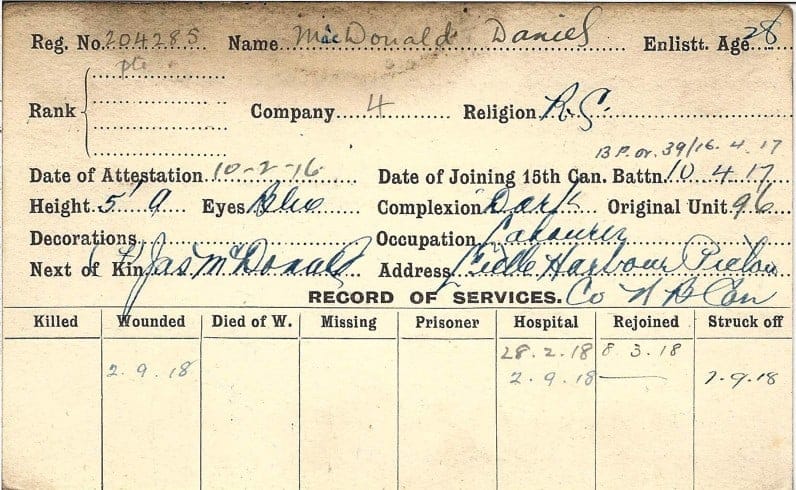 Reg. No. 204285 Name MacDonald Daniel Enlistt. Age 28
Rank pte Company 4 Religion R.C.
B.P. or. 39/16.4.17
Date of Attestation 10-2-16 Date of Joining 15th Can. Battn. 10 4 17
Height 5' 9 Eyes Blue Complexion Dark Original Unit 96
Decorations Occupation Labourer
Next of Kin (F) Jas McDonald Address Little Harbour Pictou
RECORD OF SERVICES. Co N B Can
Killed Wounded Died of W. Missing Prisoner Hospital Rejoined Struck off
28.2.18 8.3.18
2.9.18 2.9.18 7.9.18